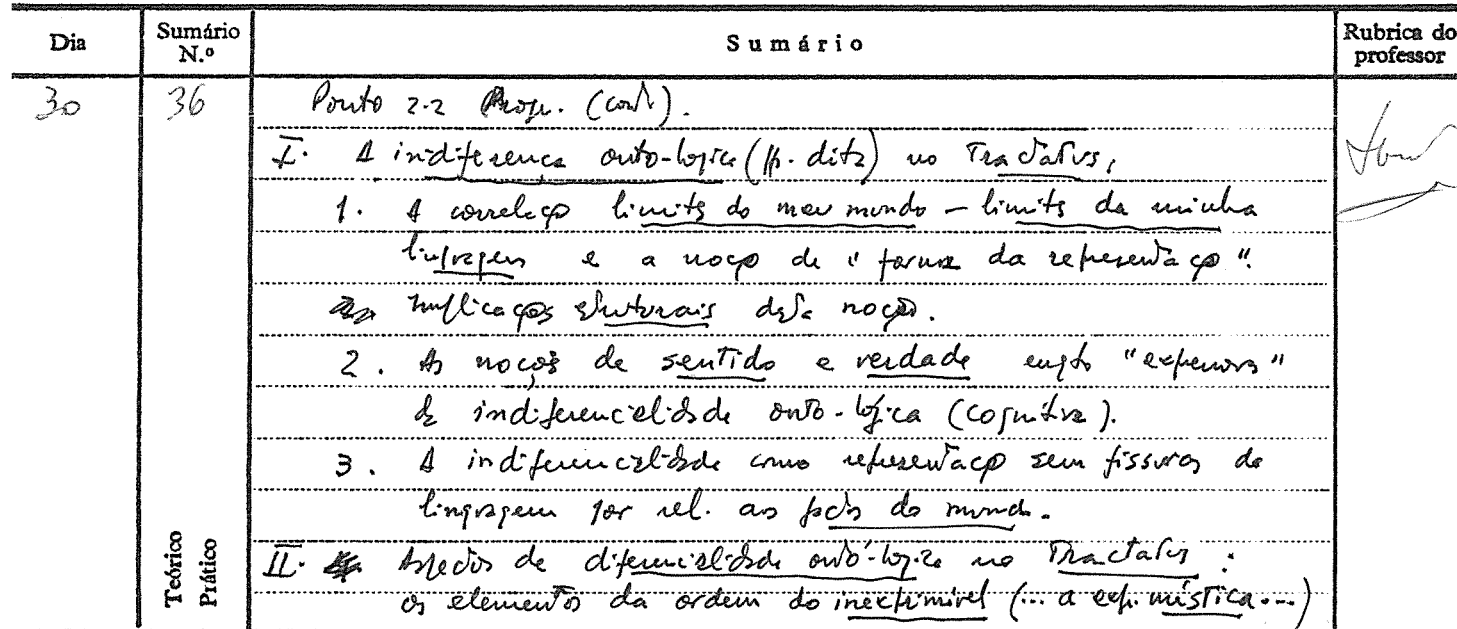 Dia
Sumário N.º
Sumário
Rubrica do professor
30
36
Ponto 2.2 Prog. (cont).
I. A indiferença onto-lógica (p. dita) no Tractatus,
1. A correlaço limits do meu mundo – limits da minha
linguagem e a noço de "forma da representaço".
Implicaços estruturais desta noço.
2. As noços de sentido e verdade enqto "expressors"
de indiferencialidade onto-lógica (cognitiva).
3. A indiferencialidade como representaço sem fissuras da
linguagem por rel. aos factos do mundo.
Teórico
Prático
II. Aspectos de diferencialidade onto-lógica no Tractatus :
os elementos da ordem do inexprimível (... a exp. mística...)